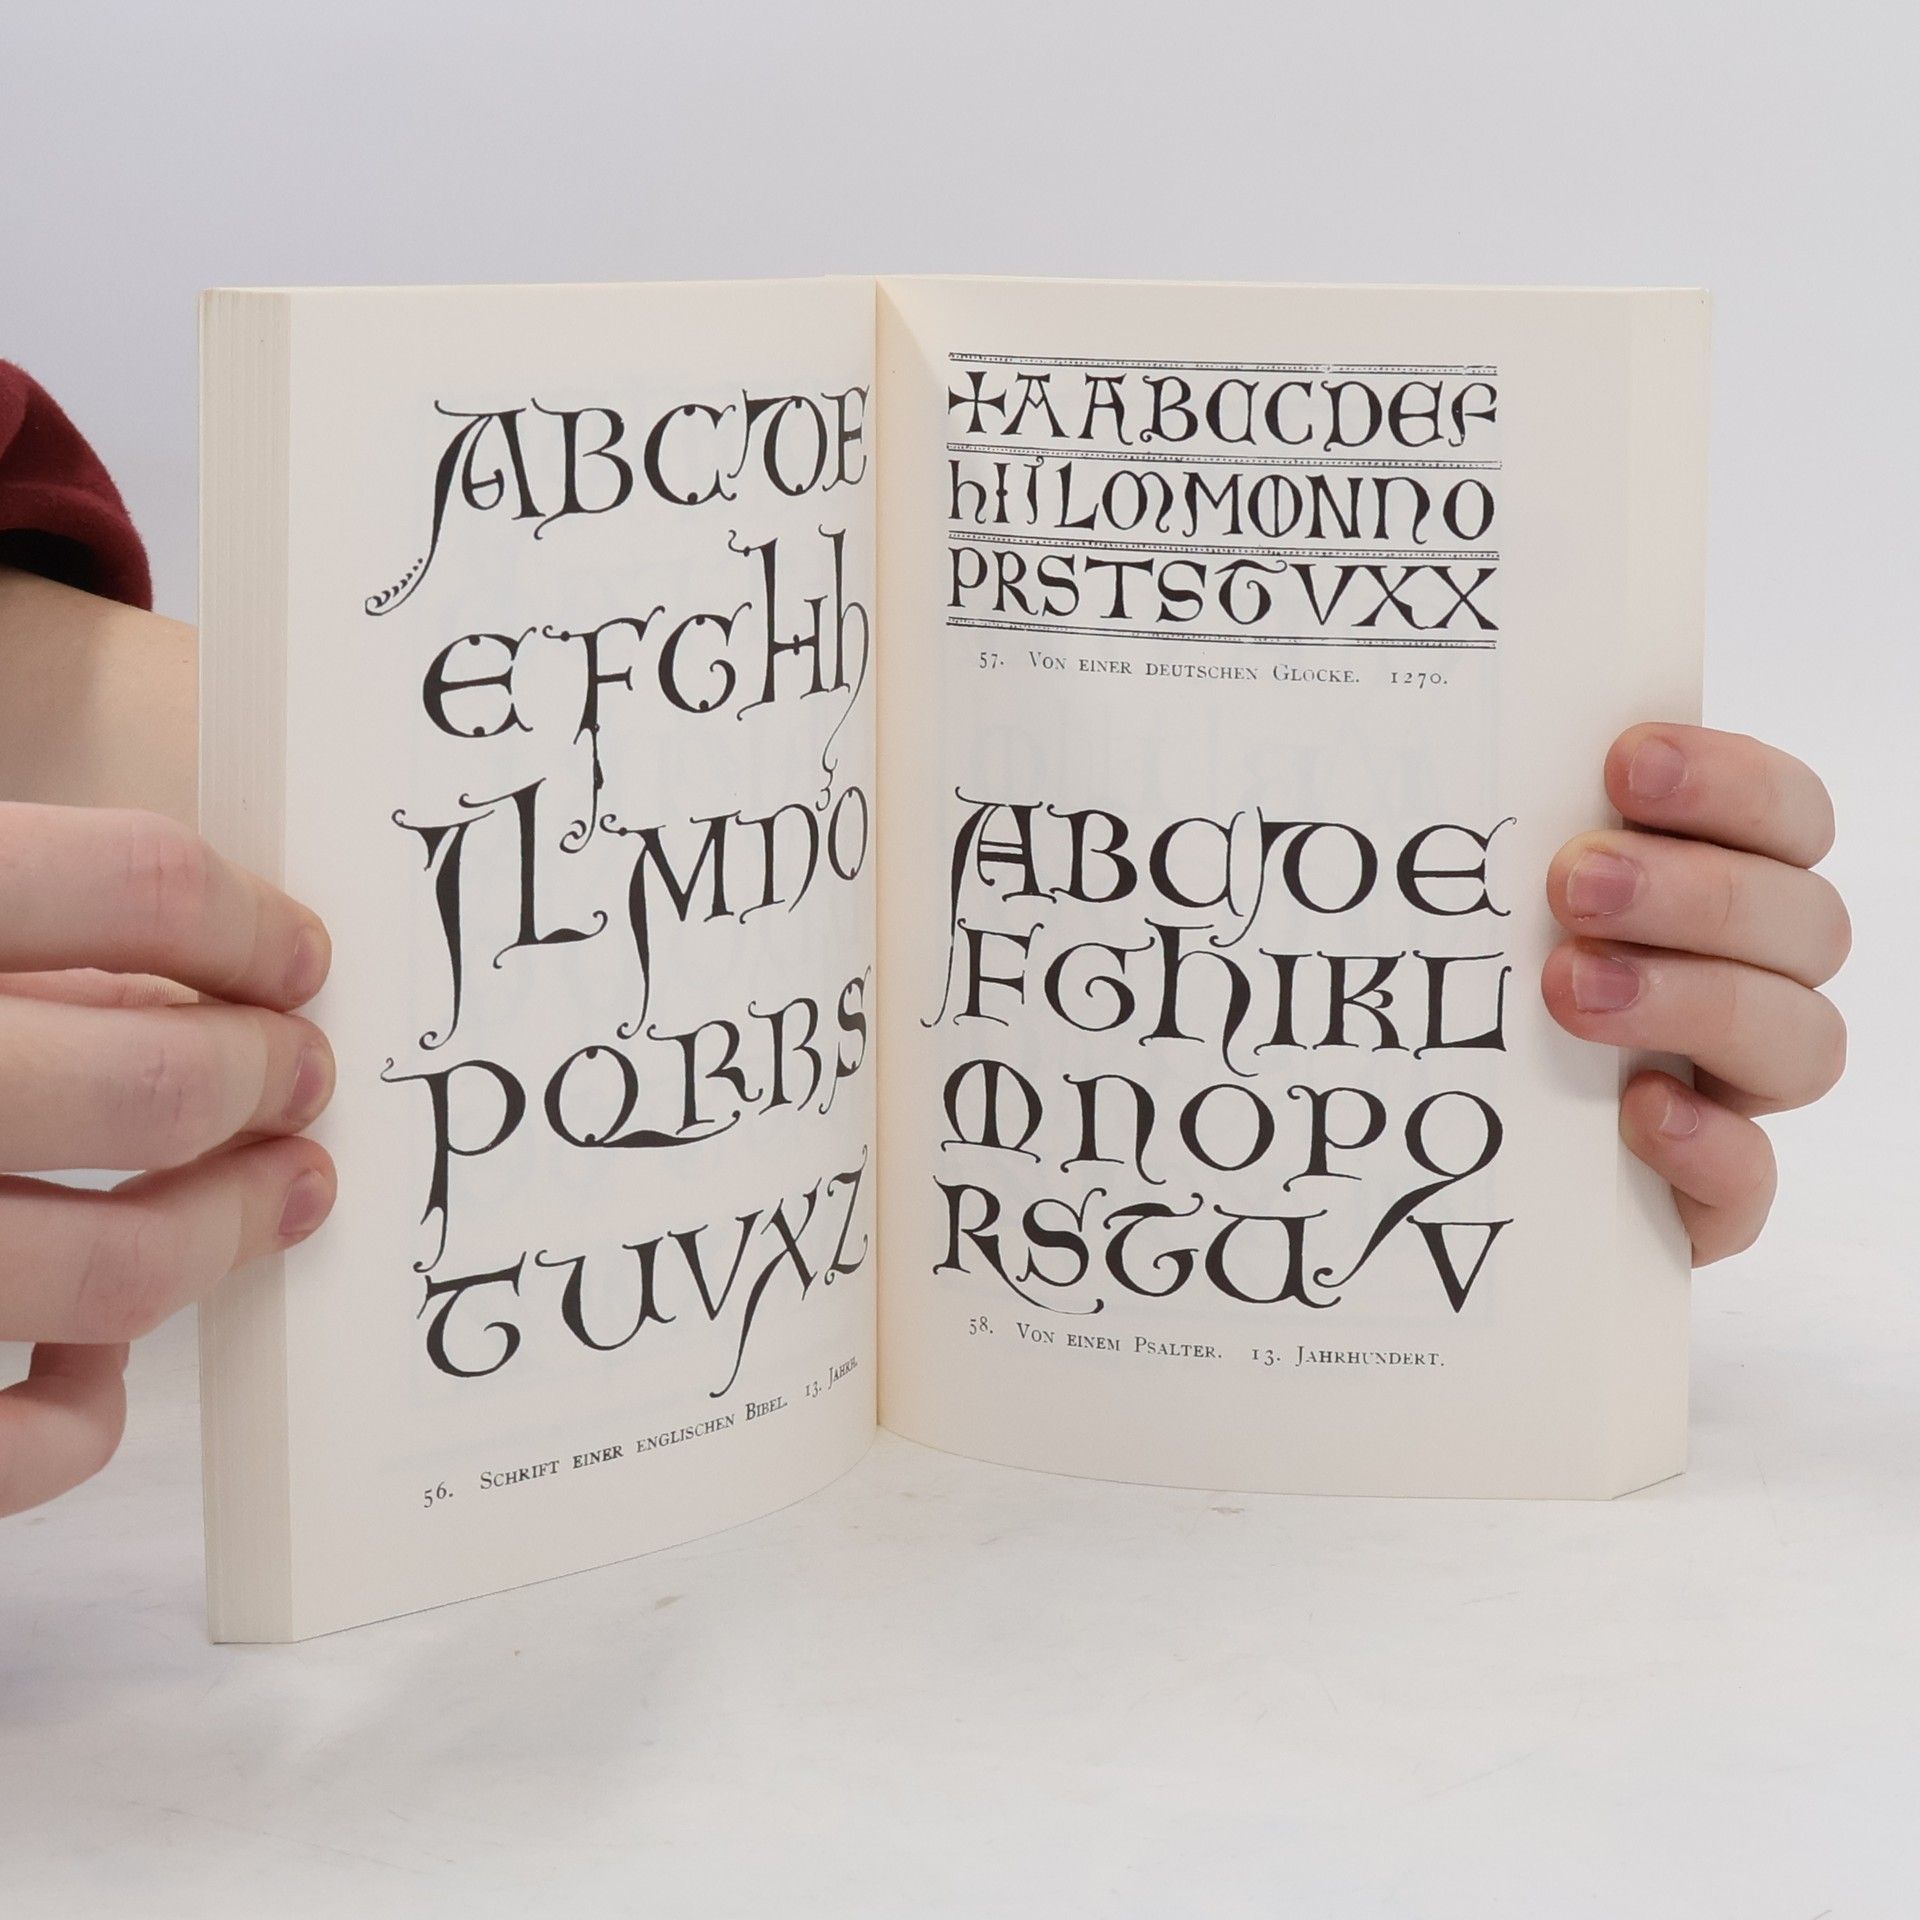 ABCDE
EFGHh
ILMNO
PQRRS
TUVXZ
56. Schrift einer englischen Bibel. 13. Jahrh.
+AABCCDEF
hIILMMONNO
PRSTSTVXX
57. Von einer deutschen Glocke. 1270.
ABCDE
FGHIKL
MNOPQ
RSTUV
58. Von einem Psalter. 13. Jahrhundert.